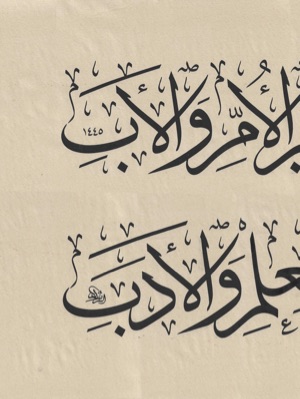 الأُمِّ وَالأَبِ ١٤٤٥
علمِ وَالأَدَبِ